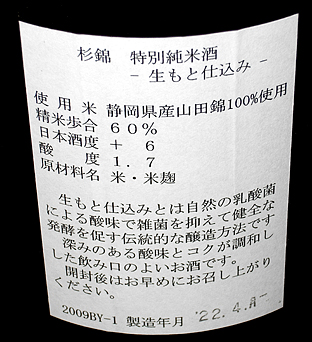 杉錦 特別純米酒
- 生もと仕込み -
使用米 静岡県産山田錦100%使用
精米歩合 60%
日本酒度 + 6
酸度 1.7
原材料名 米・米麹
生もと仕込みとは自然の乳酸菌
による酸味で雑菌を抑えて健全な
発酵を促す伝統的な醸造方法です
深みのある酸味とコクが調和し
した飲み口のよいお酒です。
開封後はお早めにお召し上がり
ください。
2009BY-1 製造年月 '22.4.月